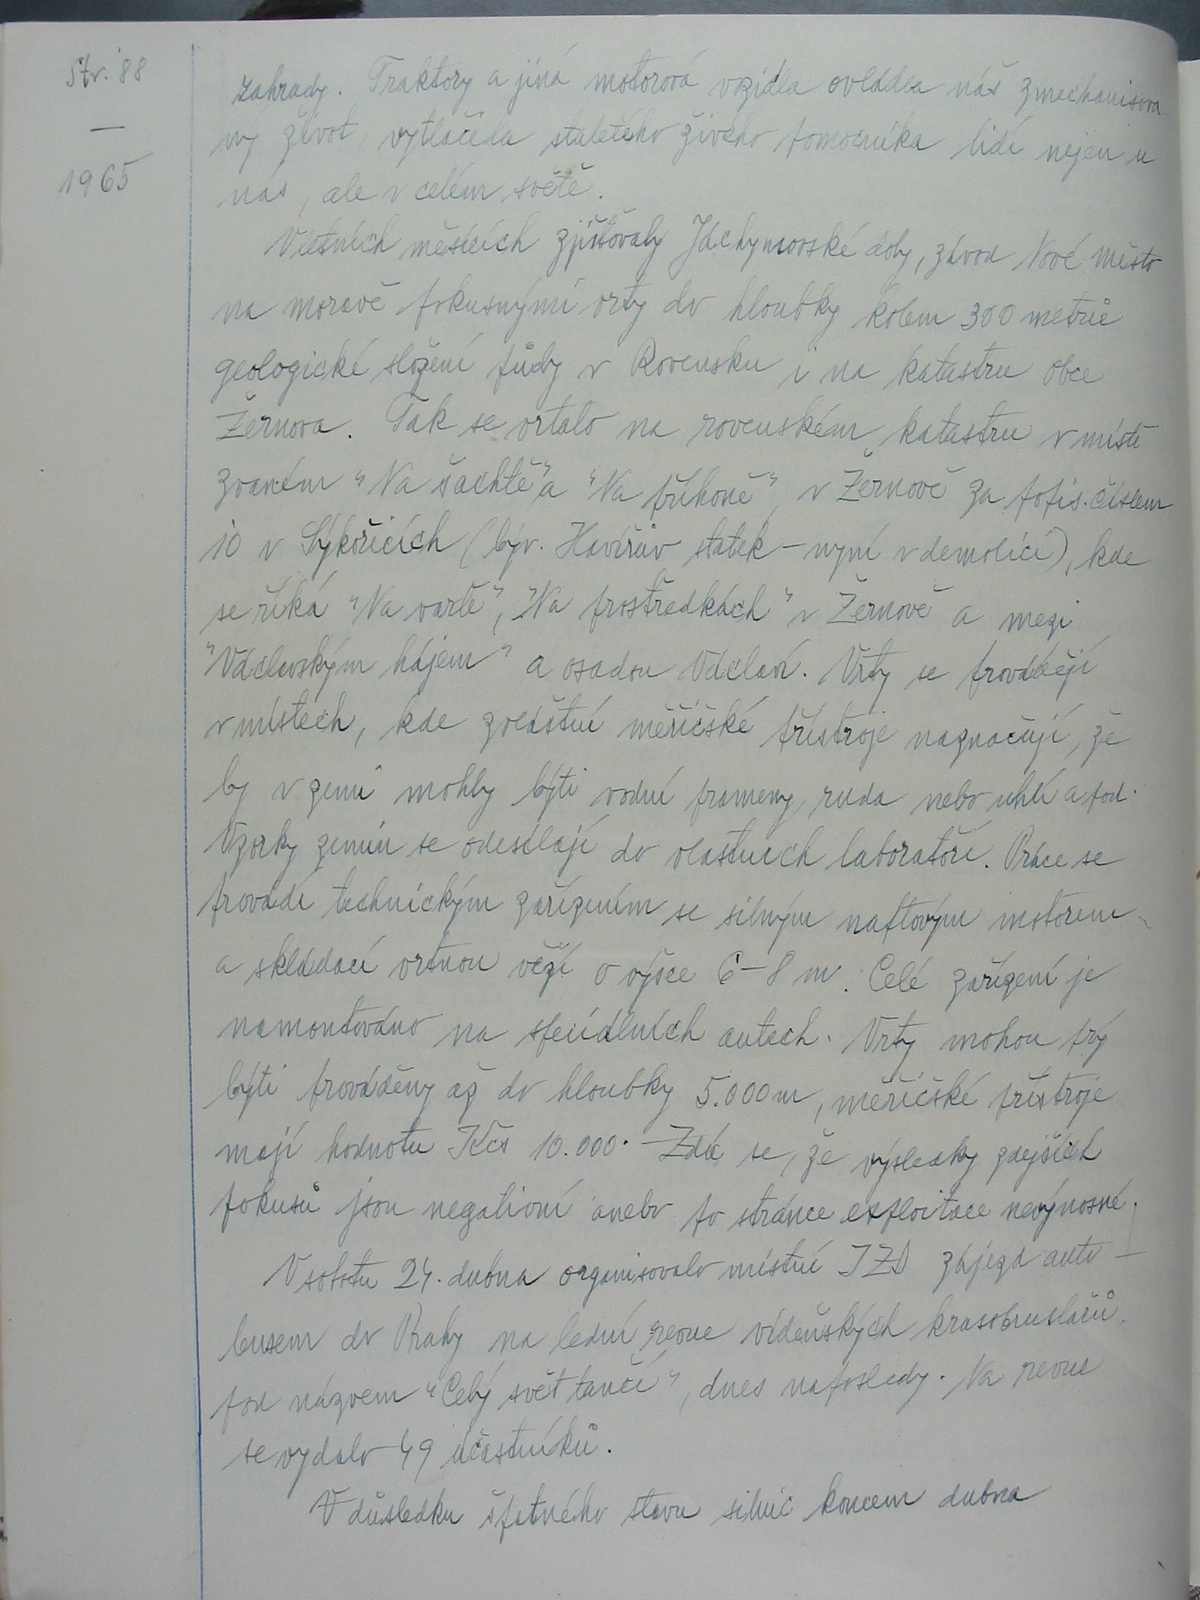 Str. 88
—
1965
zahrady. Traktory a jiná motorová vozidla ovládla náš zmechanisova-
ný život, vytlačila staletého živého pomocníka lidí nejen u
nás, ale v celém světě.
V letních měsících zjišťovaly Jáchymovské doly, závod Nové Město
na moravě pokusnými vrty do hloubky kolem 300 metrů
geologické složení půdy v Rovensku i na katastru obce
Žernova. Tak se vrtalo na rovenském katastru v místě
zvaném "Na šachtě" a "Na příkopě", v Žernově za popis. číslem
10 v Sýkořicích (býv. Havířův statek - nyní v demolici), kde
se říká "Na vartě", "Na prostředkách" v Žernově a mezi
"Václavským hájem" a osadou Václaví. Vrty se provádějí
v místech, kde zvláštní měřičské přístroje naznačují, že
by v zemi mohly býti vodní prameny, ruda nebo uhlí a pod.
Vzorky zemin se odesílají do vlastních laboratoří. Práce se
provádí technickým zařízením se silným naftovým motorem
a skládací vrtnou věží o výšce 6-8 m. Celé zařízení je
namontováno na speciálních autech. Vrty mohou prý
býti prováděny až do hloubky 5.000 m, měřičské přístroje
mají hodnotu Kčs 10.000.- Zdá se, že výsledky zdejších
pokusů jsou negativní anebo po stránce exploitace nevýnosné.
V sobotu 24. dubna organisovalo místní JZD zájezd auto-
busem do Prahy na lední revue vídeňských krasobruslařů
pod názvem "Celý svět tančí", dnes naposledy. Na revue
se vydalo 49 účastníků.
V důsledku špatného stavu silnic koncem dubna